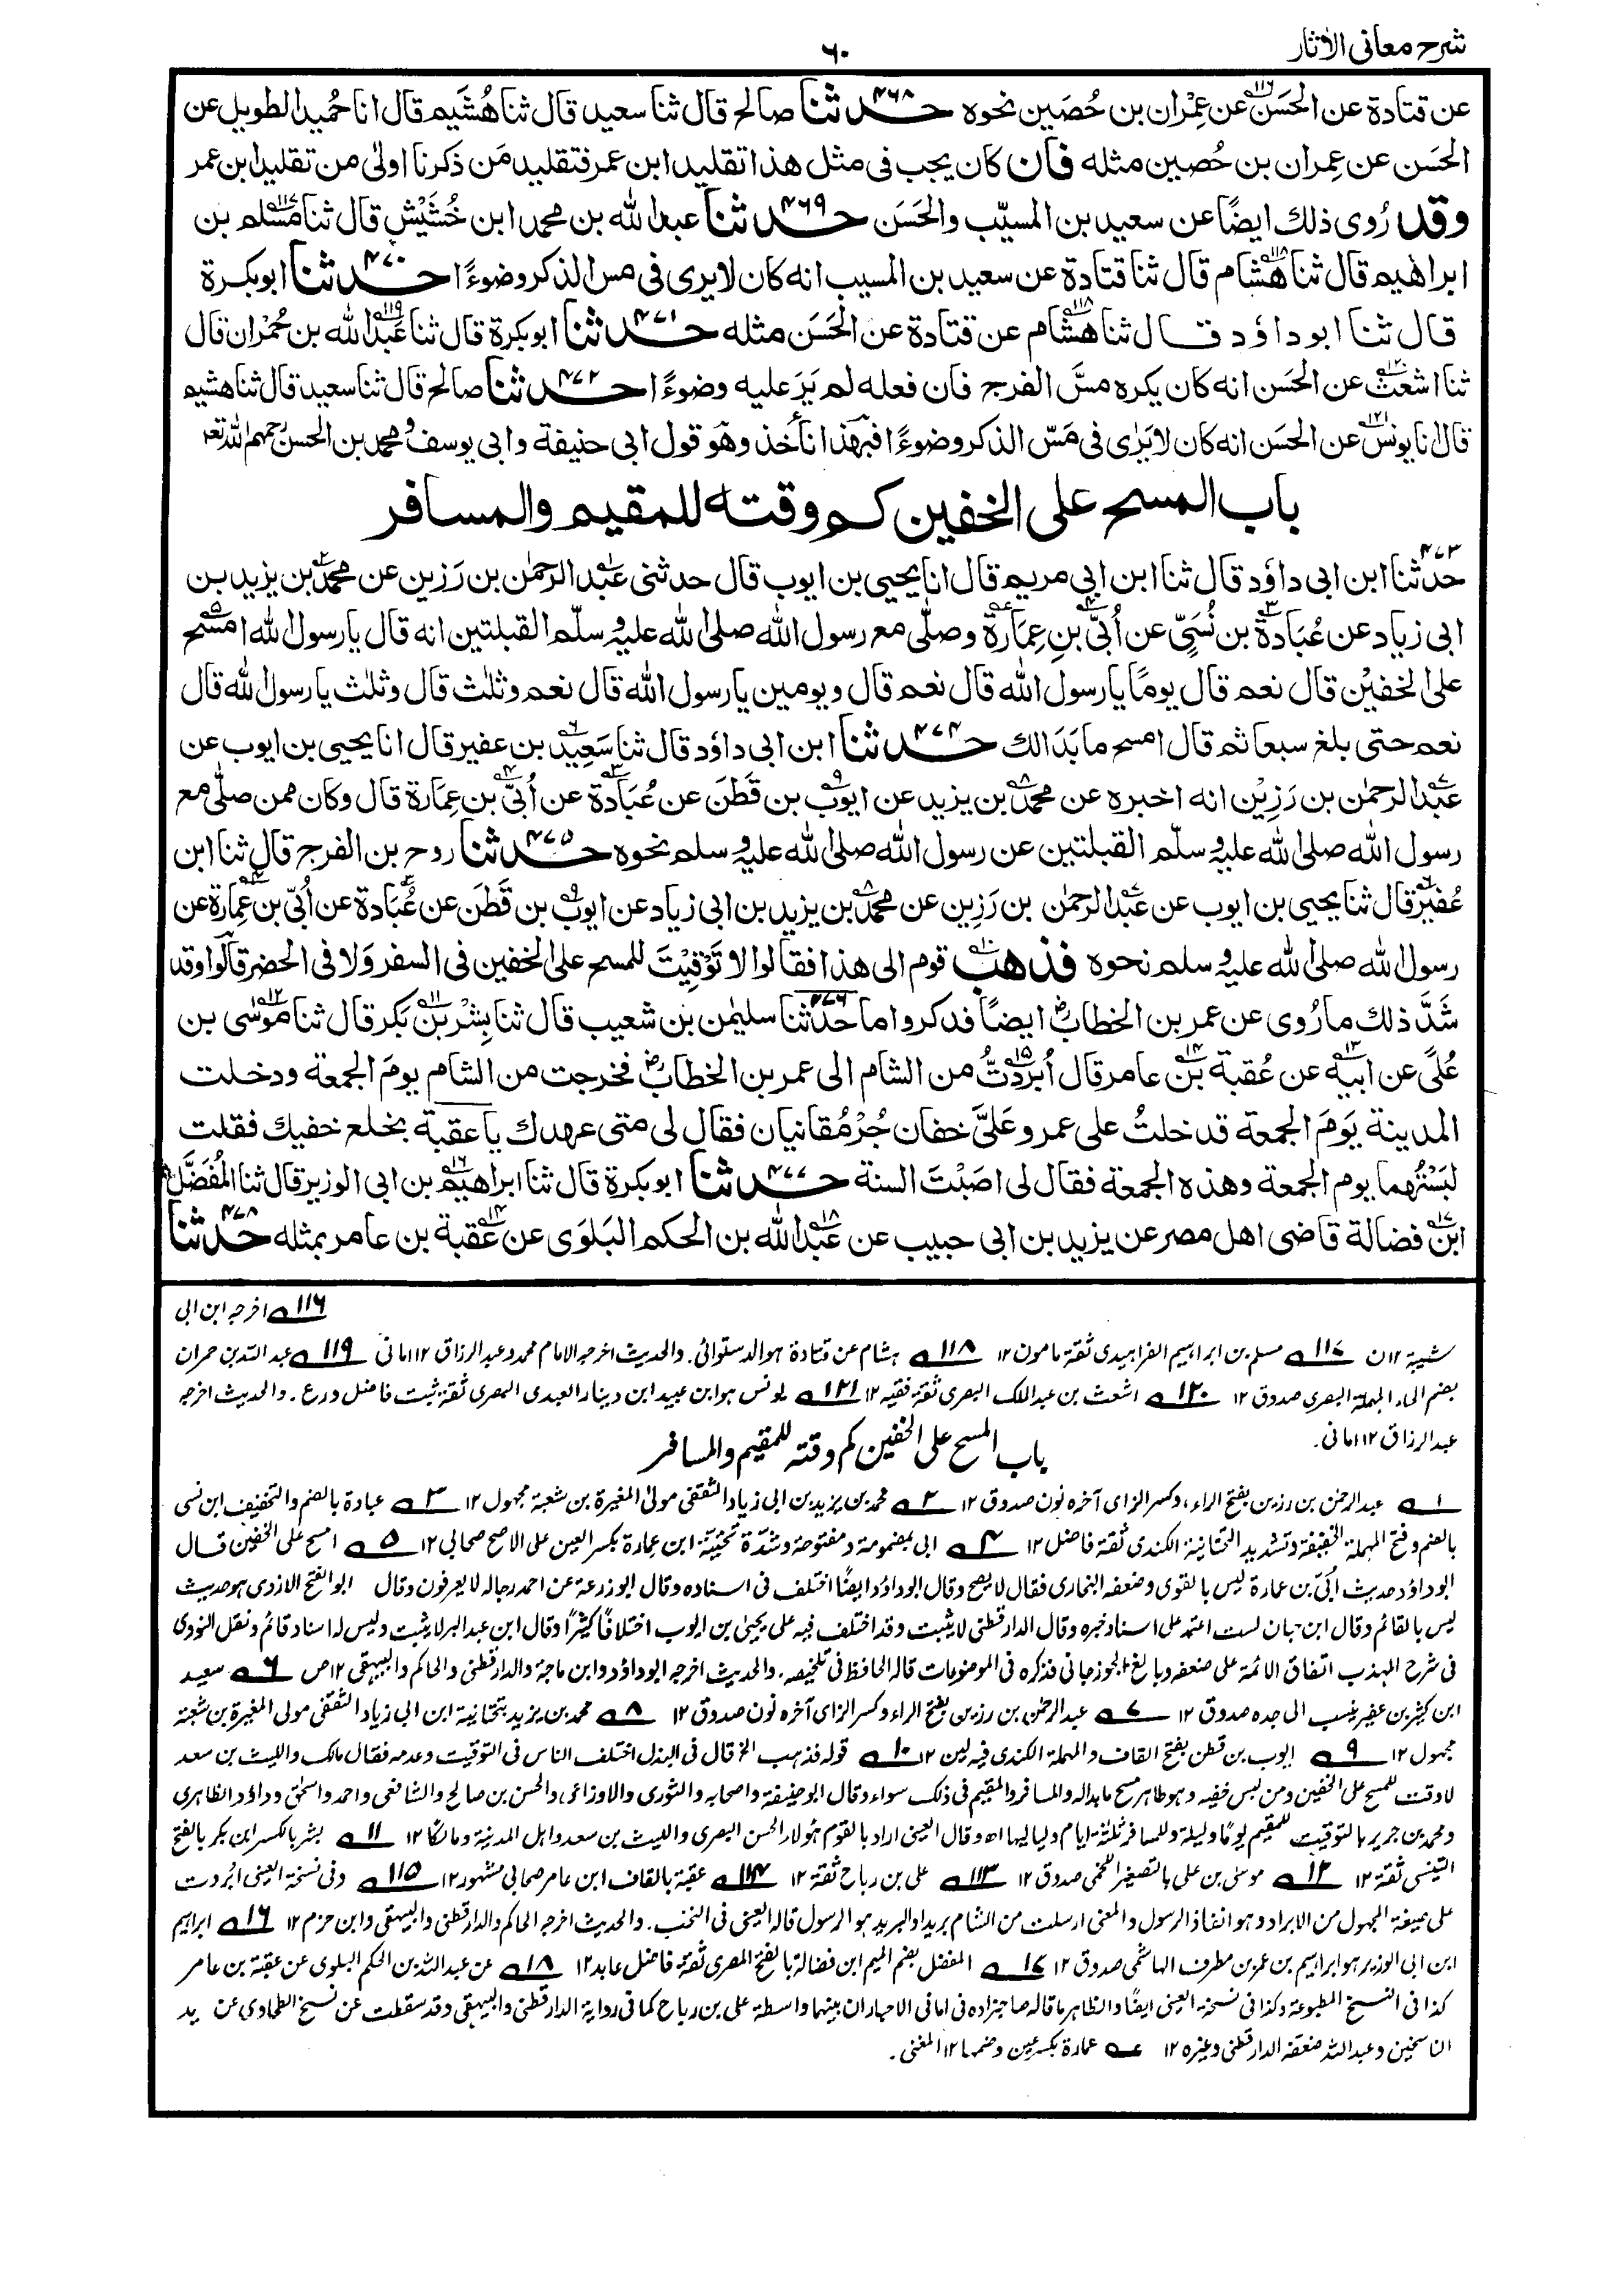 شرح معانی الاٰثار
۶۰
عن قتادة عن الحَسَن عن عِمْران بن حُصَین نحوه ۴۶۸ حدثنا صالح قال ثنا سعید قال ثنا هُشَیم قال انا حُمید الطویل عن
الحَسَن عن عِمران بن حُصین مثله فان کان یجب فی مثل هذا تقلید ابن عمر فتقلید مَن ذکرنا اولیٰ من تقلید ابن عمر
وقد رُوی ذلك ایضًا عن سعید بن المسیّب والحَسَن ۴۶۹ حدثنا عبد الله بن محمد ابن خُشَیْش قال ثنا مُسلم بن
ابراهیم قال ثنا هشام قال ثنا قتادة عن سعید بن المسیب انه کان لا یری فی مس الذکر وضوءًا ۴۷۰ حدثنا ابو بکرة
قال ثنا ابو داؤد قال ثنا هشام عن قتادة عن الحَسَن مثله ۴۷۱ حدثنا ابو بکرة قال ثنا عَبد الله بن حُمْران قال
ثنا اشعث عن الحَسَن انه کان یکره مسَّ الفرج فان فعله لم یَرَ علیه وضوءًا ۴۷۲ حدثنا صالح قال ثنا سعید قال ثنا هشیم
قال انا یونس عن الحَسَن انه کان لا یَرٰی فی مَسّ الذکر وضوءًا فبهٰذا نأخذ وهو قول ابی حنیفة وابی یوسف ومحمد بن الحسن رحمهم الله تعا
باب المسح علی الخفین کم وقته للمقیم والمسافر
۴۷۳ حدثنا ابن ابی داؤد قال ثنا ابن ابی مریم قال انا یحیی بن ایوب قال حدثنی عَبد الرحمٰن بن رَزین عن محمد بن یزید بن
ابی زیاد عن عُبَادة بن نُسَیّ عن اُبَیّ بنِ عِمَارة وصلّٰی مع رسول الله صلی الله علیه وسلّم القبلتین انه قال یا رسول الله امسح
علی الخفیْن قال نعم قال یومًا یا رسول الله قال نعم قال ویومین یا رسول الله قال نعم وثلٰث قال وثلٰث یا رسول الله قال
نعم حتی بلغ سبعا ثم قال امسح ما بَدَا لك ۴۷۴ حدثنا ابن ابی داؤد قال ثنا سَعِید بن عفیر قال انا یحیی بن ایوب عن
عَبد الرحمٰن بن رَزِیْن انه اخبره عن محمد بن یزید عن ایوب بن قَطَنَ عن عُبَادة عن اُبَیّ بن عِمَارة قال وکان ممن صلّٰی مع
رسول الله صلی الله علیه وسلّم القبلتین عن رسول الله صلی الله علیه وسلم نحوه ۴۷۵ حدثنا روح بن الفرج قال ثنا ابن
عُفَیر قال ثنا یحیی بن ایوب عن عَبد الرحمٰن بن رَزِین عن محمد بن یزید بن ابی زیاد عن ایوب بن قَطَنَ عن عُبَادة عن اُبَیّ بن عِمَارة عن
رسول الله صلی الله علیه وسلم نحوه فذهب قوم الی هذا فقالوا لا تَوْقِیْتَ للمسح علی الخفین فی السفر وَلا فی الحضر قالوا وقد
شَدَّ ذلك ما رُوی عن عمر بن الخطاب ایضًا فذکروا ما ۴۷۶ حدثنا سلیمٰن بن شعیب قال ثنا بِشْر بن بکر قال ثنا مُوسٰی بن
عُلَیّ عن ابیه عن عُقبة بن عامر قال اُبْرِدتُّ من الشام الی عمر بن الخطاب فخرجت من الشام یومَ الجمعة ودخلت
المدینة یَومَ الجمعة فدخلتُ علی عمر وعَلَیَّ خفان جُرْمُقانیان فقال لی متی عهدك یا عقبة بخلع خفیك فقلت
لبَسْتُهما یوم الجمعة وهذه الجمعة فقال لی اصَبْتَ السنة ۴۷۷ حدثنا ابو بکرة قال ثنا ابراهیم بن ابی الوزیر قال ثنا المُفَضَّل
ابن فضالة قاضی اهل مصر عن یزید بن ابی حبیب عن عَبد الله بن الحکم البَلَوی عن عُقبة بن عامر بمثله ۴۷۸ حدثنا
۱۱۶ اخرجه ابن ابی
شیبة ۱۲ن ۱۱۷ مسلم بن ابراہیم الفراہیدی ثقة مامون ۱۲ ۱۱۸ ہشام عن قتادة ہو الدستوائی. والحدیث اخرجه الامام محمد وعبد الرزاق ۱۲ امانی ۱۱۹ عبد الله بن حمران
بضم الحاء المہملة البصری صدوق ۱۲ ۱۲۰ اشعث بن عبد الملک البصری ثقة فقیه ۱۲ ۱۲۱ یونس ہو ابن عبید ابن دینار العبدی البصری ثقة ثبت فاضل ورع. والحدیث اخرجه
عبد الرزاق ۱۲ امانی.
باب المسح علی الخفین کم وقته للمقیم والمسافر
۱ عبد الرحمٰن بن رزین بفتح الراء، وکسر الزای آخره نون صدوق ۱۲ ۲ محمد بن یزید بن ابی زیاد الثقفی مولی المغیرة بن شعبة مجہول ۱۲ ۳ عبادة بالضم والتخفیف ابن نسی
بالضم وفتح المہملة الخفیفة وتشدید التحتانیة الکندی ثقة فاضل ۱۲ ۴ ابی بمضمومة ومفتوحة وشدة تحتیة ابن عمارة بکسر العین علی الاصح صحابی ۱۲ ۵ امسح علی الخفین قال
ابو داؤد حدیث اُبَیّ بن عمارة لیس بالقوی وضعفه البخاری فقال لا یصح وقال ابو داؤد ایضًا اختلف فی اسناده وقال ابو زرعة عن احمد رجاله لا یعرفون وقال ابو الفتح الازدی ہو حدیث
لیس بالقائم وقال ابن حبان لست اعتمد علی اسناد خبره وقال الدارقطنی لا یثبت وقد اختلف فیه علی یحییٰ بن ایوب اختلافًا کثیرًا وقال ابن عبد البر لا یثبت ولیس له اسناد قائم ونقل النووی
فی شرح المہذب اتفاق الائمة علی ضعفه وبالغ الجوزجانی فذکره فی الموضوعات قاله الحافظ فی تلخیصه. والحدیث اخرجه ابو داؤد وابن ماجة والدارقطنی والحاکم والبیہقی ۱۲ص ۶ سعید
ابن کثیر بن عفیر ینسب الی جده صدوق ۱۲ ۷ عبد الرحمٰن بن رزین بفتح الراء وکسر الزای آخره نون صدوق ۱۲ ۸ محمد بن یزید بتحتانیة ابن ابی زیاد الثقفی مولی المغیرة بن شعبة
مجہول ۱۲ ۹ ایوب بن قطن بفتح القاف والمہملة الکندی فیه لین ۱۲ ۱۰ قوله فذہب الخ قال فی البذل اختلف الناس فی التوقیت وعدمه فقال مالک واللیث بن سعد
لا وقت للمسح علی الخفین ومن لبس خفیه وہو طاہر مسح ما بدا له والمسافر والمقیم فی ذلک سواء وقال ابو حنیفة واصحابه والثوری والاوزاعی، والحسن بن صالح والشافعی واحمد واسحٰق وداؤد الظاہری
ومحمد بن جریر بالتوقیت للمقیم یومًا ولیلة وللمسافر ثلثة ایام ولیالیہا اھ وقال العینی اراد بالقوم ہؤلاء الحسن البصری واللیث بن سعد واہل المدینة ومالکًا ۱۲ ۱۱ بشر بالکسر ابن بکر بالفتح
التنیسی ثقة ۱۲ ۱۲ موسیٰ بن علی بالتصغیر اللخمی صدوق ۱۲ ۱۱۳ علی بن رباح ثقة ۱۲ ۱۱۴ عقبة بالقاف ابن عامر صحابی مشہور ۱۲ ۱۱۵ وفی نسخة العینی ابُردت
علی صیغة المجہول من الابراد وہو انفاذ الرسول والمعنی ارسلت من الشام بریدا والبرید ہو الرسول قاله العینی فی النخب. والحدیث اخرجه الحاکم والدارقطنی والبیہقی وابن حزم ۱۲ ۱۶ ابراہیم
ابن ابی الوزیر ہو ابراہیم بن عمر بن مطرف الہاشمی صدوق ۱۲ ۱۷ المفضل بضم المیم ابن فضالة بالفتح المصری ثقة فاضل عابد ۱۲ ۱۸ عن عبد الله بن الحکم البلوی عن عقبة بن عامر
کذا فی النسخ المطبوعة وکذا فی نسخة العینی ایضًا والظاہر ما قاله صاحبزاده فی امانی الاحبار ان بینہما واسطة علی بن رباح کما فی روایة الدارقطنی والبیہقی وقد سقطت عن نسخ الطحاوی عن ید
الناسخین وعبد الله ضعفه الدارقطنی وغیره ۱۲ عه عمارة بکسر عین وضمہا ۱۲ المغنی.